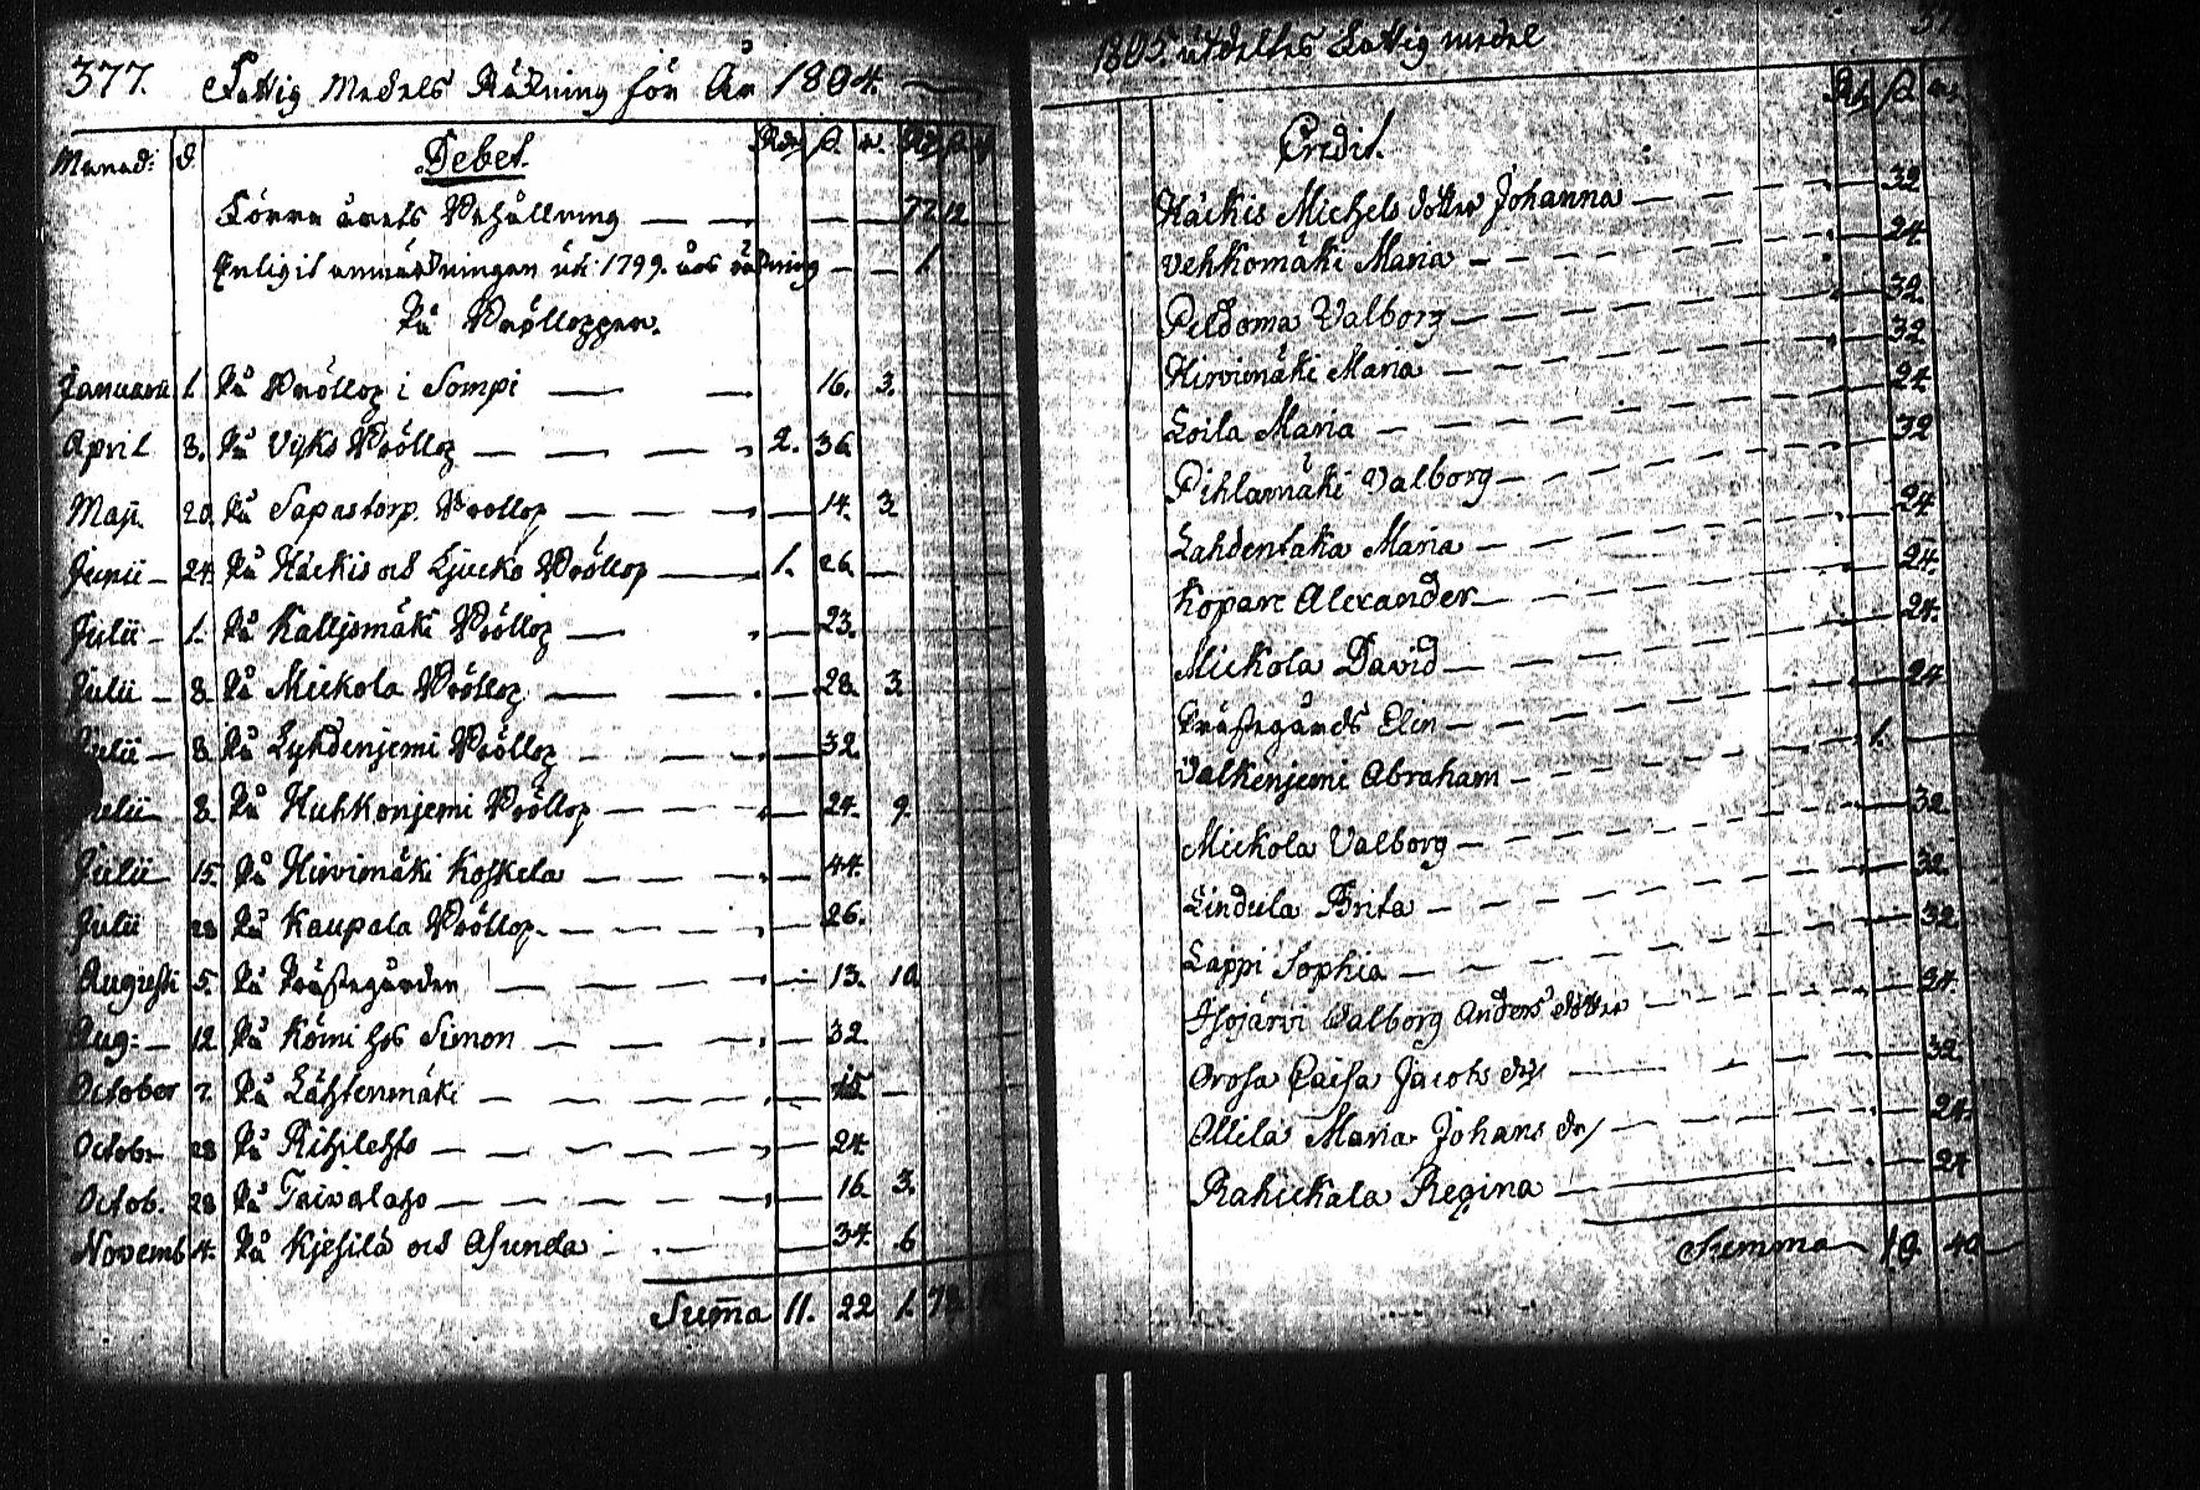 377. Fattig Medels Räkning för År 1804.
Månad: d. Debet. Rdr ß. r. Rdr ß r
Förra årets Behållning — — 77 12
Enligit anmärkningen uti 1799. års räkning — — 1.
På Bröllopper.
Januarii 1. På Bröllop i Sompi — — 16. 3.
April 8. På Vyks Bröllop — — — 2. 36
Maji. 20. På Sapastorp. Bröllop — — — 14. 3
Junii — 24. På Häckis och Ljucko Bröllop — 1. 26 —
Julii — 1. På Kalljomäki Bröllop — — 23.
Julii — 8. På Mickola Bröllop — — — 28. 3
Julii — 8. På Lyhdenjemi Bröllop — — — 32.
Julii — 8. På Huhkonjemi Bröllop — — — 24. 9.
Julii — 15. På Hirvimäki Koskela — — — 44.
Julii 28 På Kaupala Bröllop. — — — 26.
Augusti 5. På Prästegården — — — 13. 10.
Aug: — 12 På Kömi hos Simon — — — 32.
October 7. På Lähtenmäki — — — 15. —
Octobr 28 På Rihilehto — — — 24.
Octob. 28 På Taivalaho — — — 16. 3.
Novemb 4. På Kjesilä och Asunda — — 34. 6
Summa 11. 22 1. 78
1805. utdeltes Fattig medel
Credit. Rd. ß. r.
Häckis Michels dotter Johanna — — — 32
Vehkomäki Maria — — — 24.
Peldoma Valborg — — — 32.
Hirvimäki Maria — — — 32.
Loila Maria — — — 24.
Pihlamäki Valborg — — — 32
Lahdentaka Maria — — — 24
Kopare Alexander — — — 24.
Mickola David — — — 24.
Prästegårds Elin — — — 24
Valkenjemi Abraham — — — 1. —
Mickola Valborg — — — 32
Lindula Brita — — — 32.
Lappi Sophia — — — 32
Isojärvi Valborg Anders dotter — — — 24.
Orosa Caisa Jacobs dr — — — 32
Ollila Maria Johans dr — — — 24.
Rahickala Regina — — — 24
Summa 10. 40 —